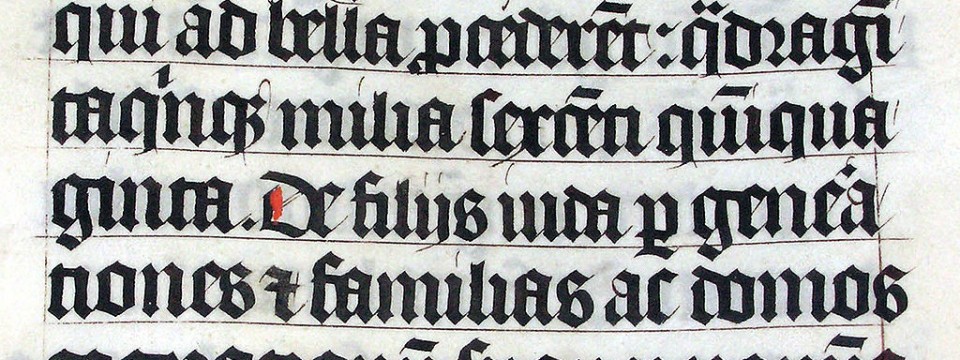 qui ad bella ꝓcederēt : q̈dragī
taqͥnqꝫ milia sexcēti qͥnqua
ginta. De filijs iuda ꝑ gen̄ea
tiones ⁊ familias ac domos